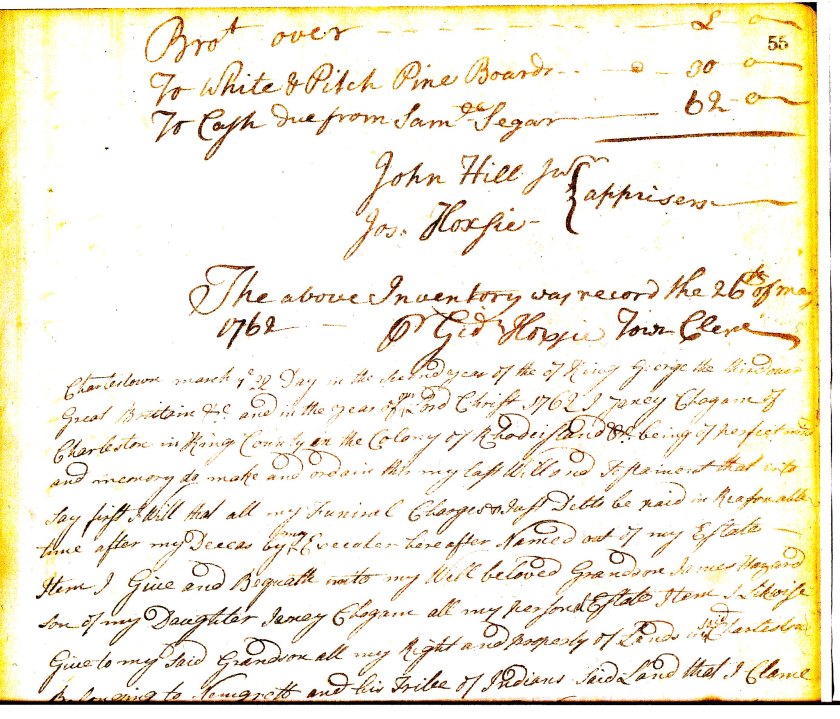 55
Bro:t over - - - - - - - £ - 0
To White & Pitch Pine Boards - - - 30 - 0
To Cash due from Sam:ll Segar — 62 - 0
John Hill Jun:r
Jos: Hoxsie - } apprisers
The above Inventory was record the 26:th of may
1762 — P:r Gid: Hoxsie Town Clerk
Charlestown march y:e 22 Day in the second year of the of King George the third over
Great Brittain &:c and in the year of our Lord Christ 1762 I Janey Clogam of
Charleston in King County in the Colony of Rhodeisland &:c being of perfect mind
and memory do make and ordain this my last Will and Testament that is to
Say first I Will that all my Funiral Charges & Just Debts be paid in Reasonable
time after my Deceas by my Executer hereafter Named out of my Estate —
Item I Give and Bequath unto my Well beloved Grandson James
son of my Daughter Janey Clogam all my personal Estate Item I Likwise
Give to my Said Grandson all my Right and Property of Lands in said Charleston
Belonging to and his Tribe of Indians Said Land that I Clame